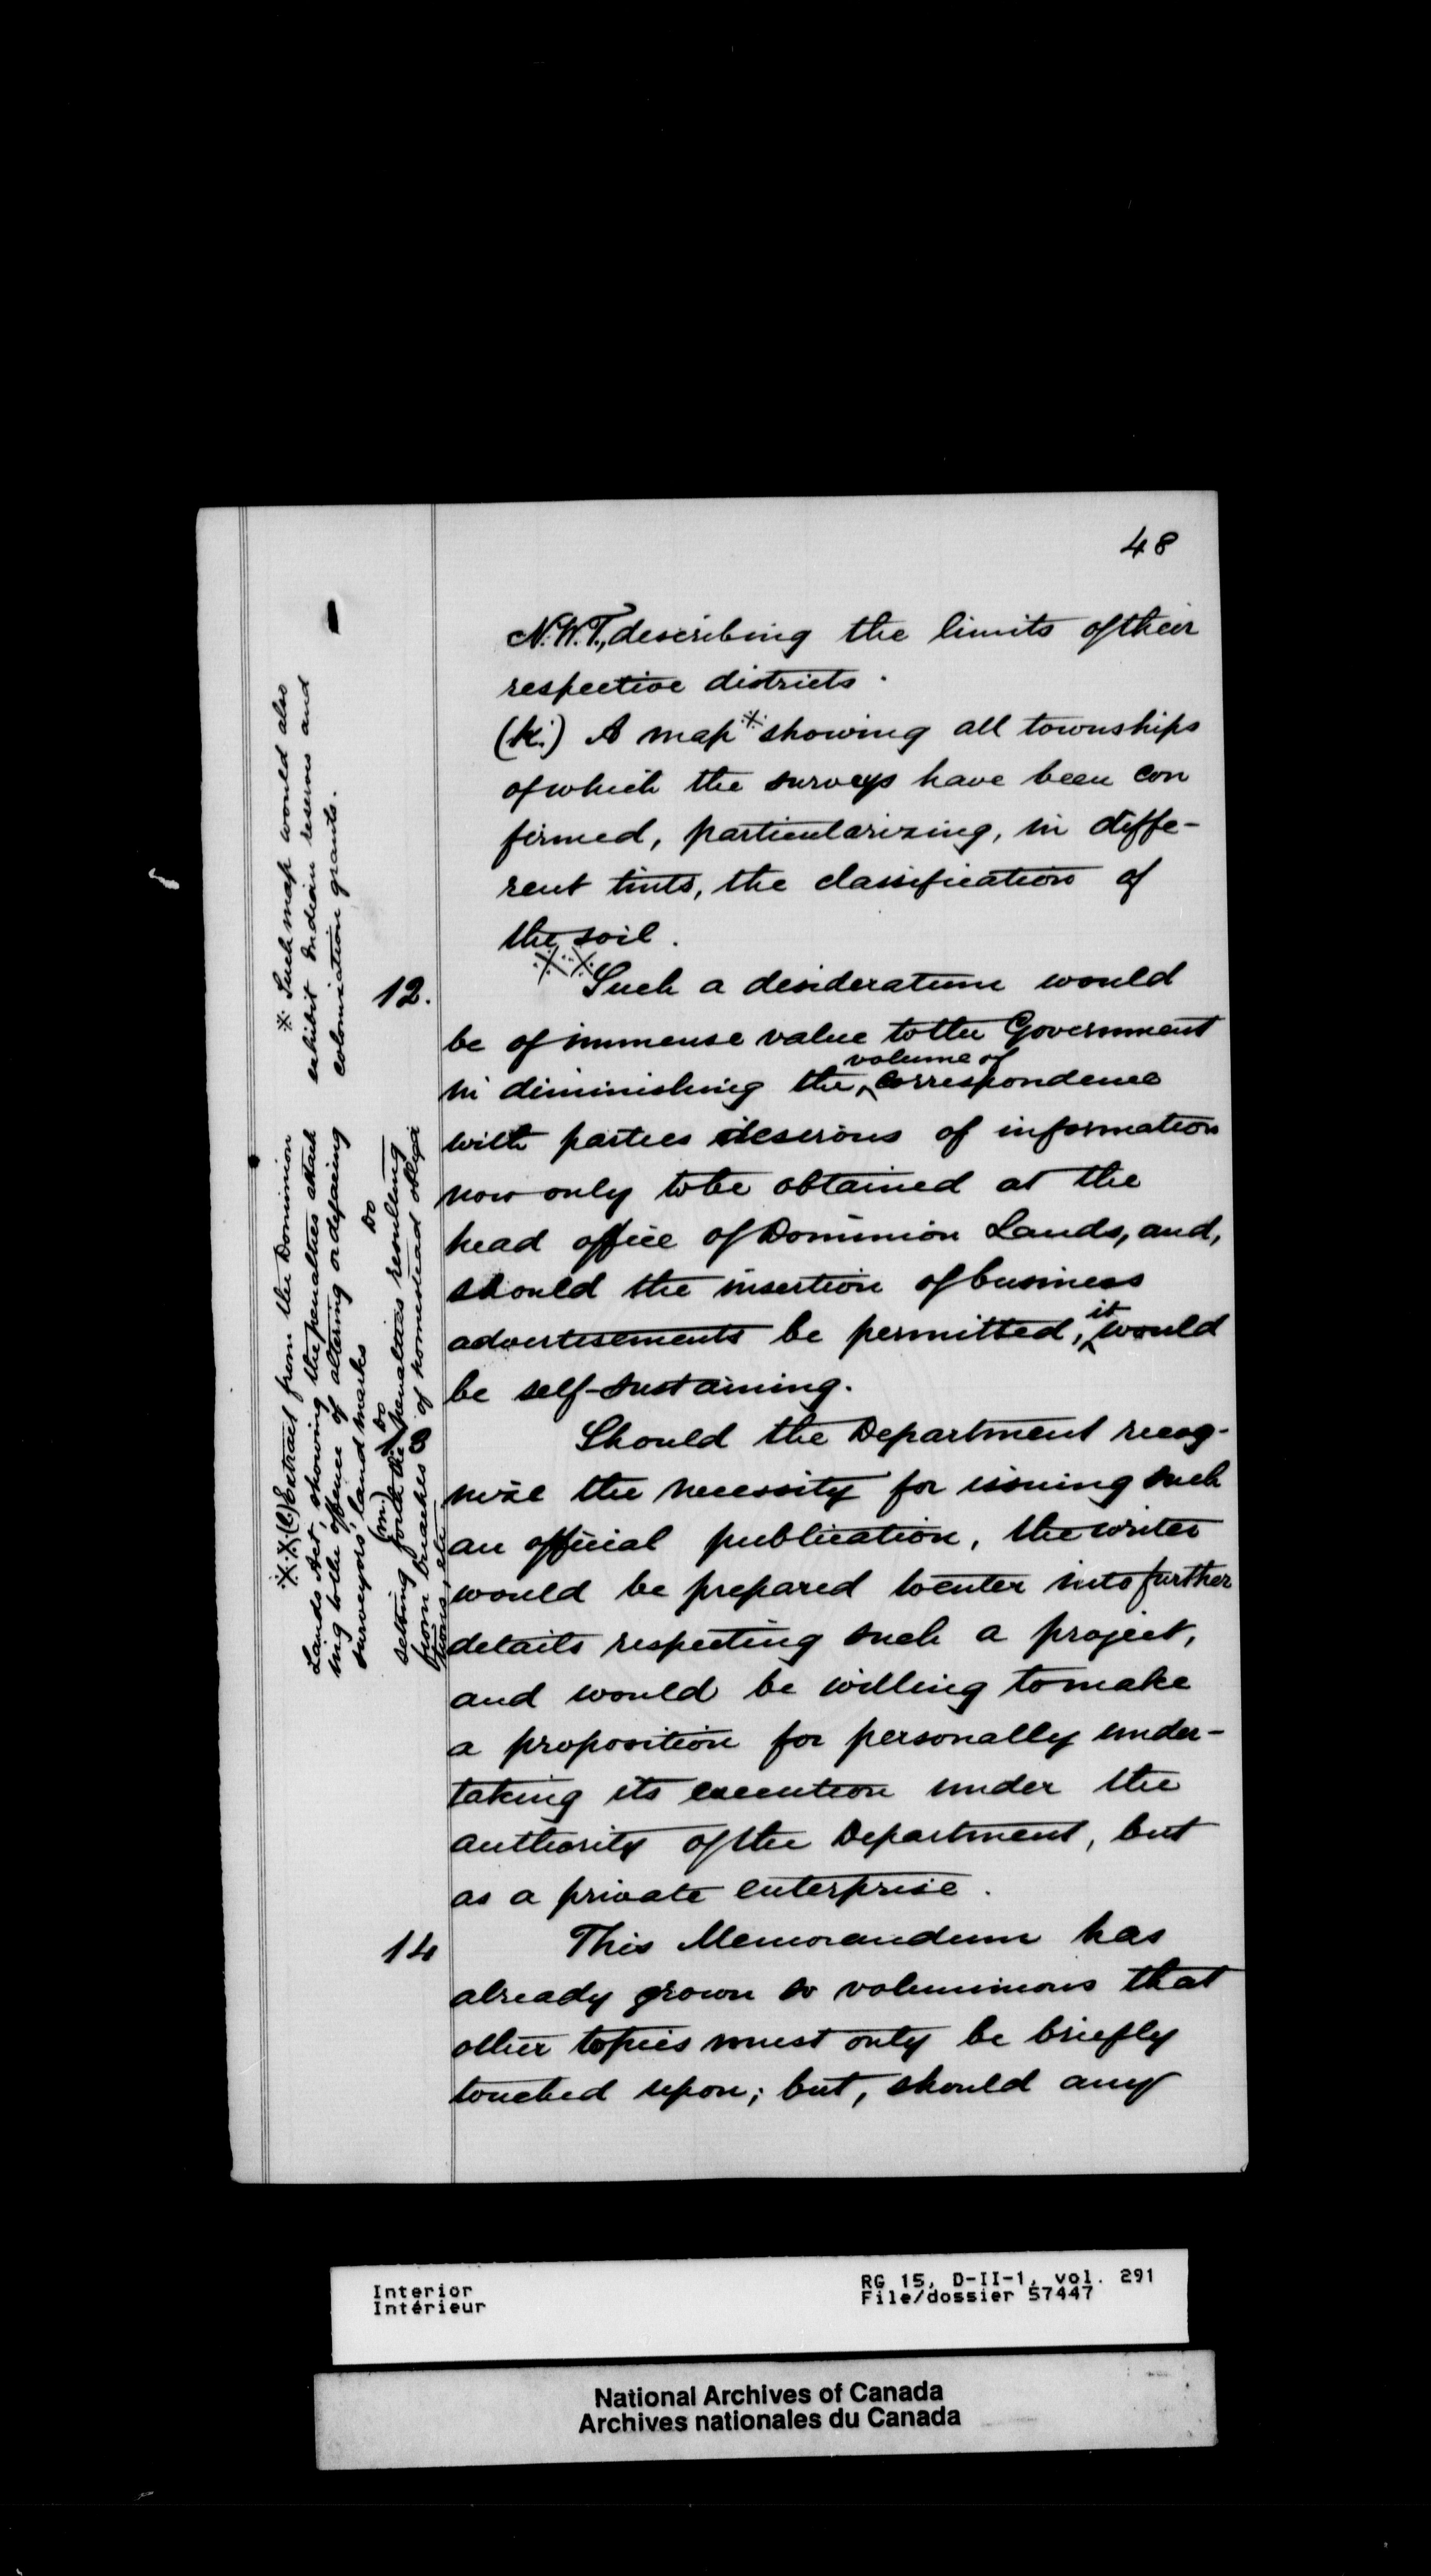 48
N.W.T., describing the limits of their
respective districts.
(k.) A map ※ showing all townships
of which the surveys have been con
firmed, particularizing, in diffe-
rent tints, the classification of
the soil.
※ ※
12. Such a desideratum would
be of immense value to the Government
volume of
in diminishing the ‸ correspondence
with parties desirous of information
now only to be obtained at the
head office of Dominion Lands, and,
should the insertion of business
it
advertisements be permitted, ‸ would
be self-sustaining.
Should the Department recog-
nize the necessity for issuing such
an official publication, the writer
would be prepared to enter into further
details respecting such a project,
and would be willing to make
a proposition for personally under-
taking its execution under the
authority of the Department, but
as a private enterprise.
14 This Memorandum has
already grown so voluminous that
other topics must only be briefly
touched upon; but, should any
※ Such map would also
exhibit Indian reserves and
colonization grants.
※ ※ (l.) Extract from the Dominion
Lands Act, showing the penalties attach
ing to the offence of altering or defacing
surveyors' land marks
(m.) Do Do
setting forth the penalties resulting
from breaches of homestead obliga
tions, etc.
Interior
Intérieur
RG 15, D-II-1, vol. 291
File/dossier 57447
National Archives of Canada
Archives nationales du Canada